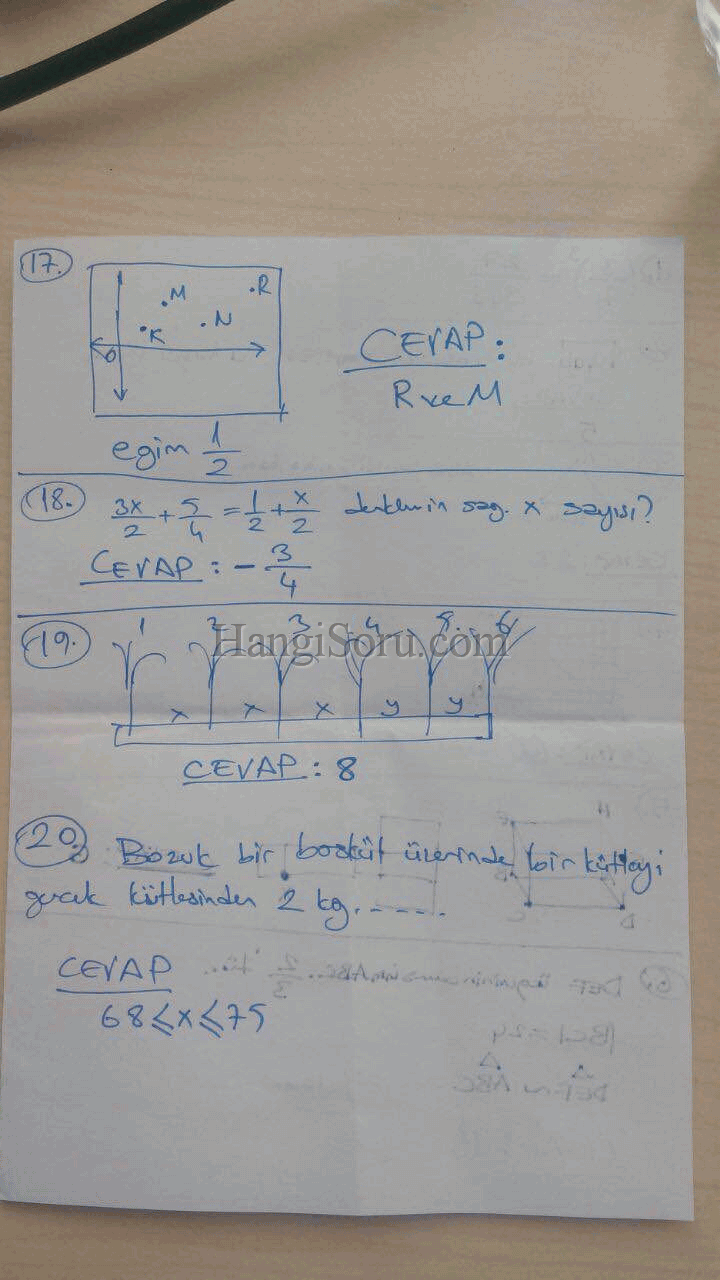 17.
M
R
K
N
O
CEVAP:
R ve M
egim 1/2
18.
3x/2 + 5/4 = 1/2 + x/2 denklemin sağ. x sayısı?
CEVAP: - 3/4
19.
1 2 3 4 5 6
HangiSoru.com
x x x y y
CEVAP: 8
20. Bozuk bir baskül üzerinde bir kütleyi
gerçek kütlesinden 2 kg......
CEVAP
68 ≤ x ≤ 75